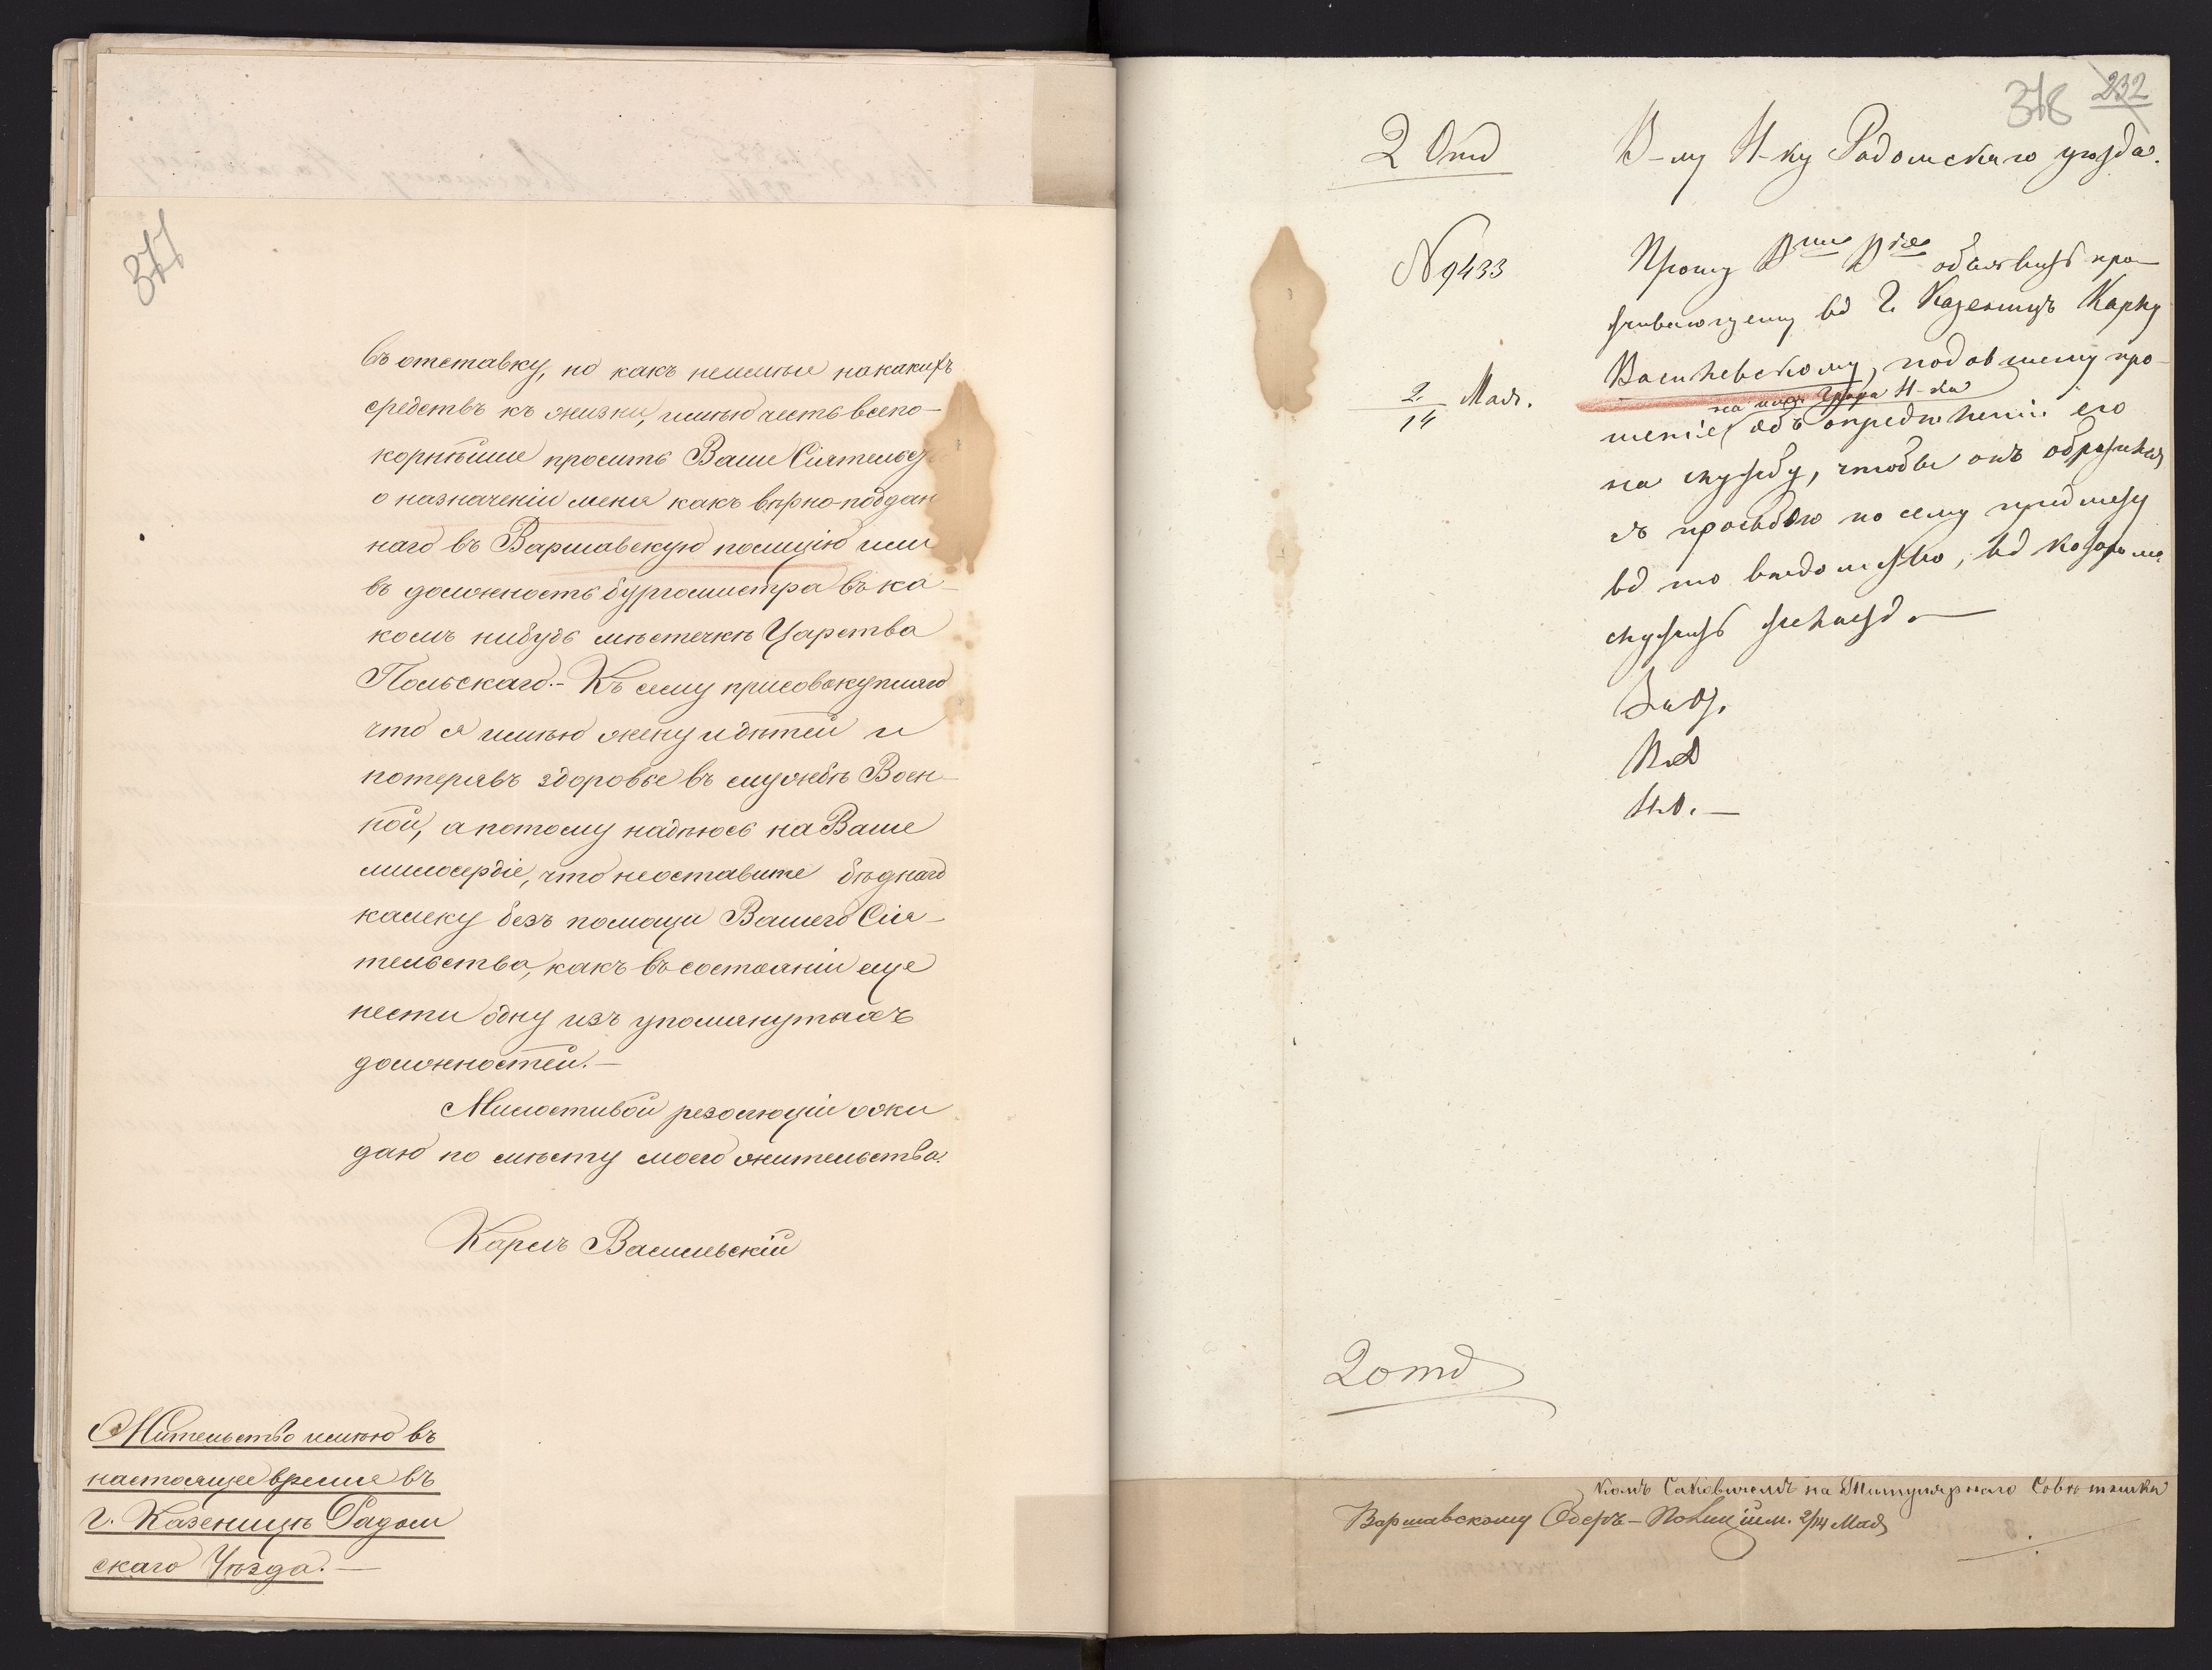 377
въ отставку, но какъ неимѣя никакихъ
средствъ къ жизни, имѣю честь всепо-
корнѣйше просить Ваше Сіятельст
о назначеніи меня какъ вѣрно-поддан
наго въ Варшавскую полицію или
въ должность бургомистра въ ка-
комъ нибудь мѣстечкѣ Царства
Польскаго.- Къ сему присовокупляю
что я имѣю жену и дѣтей и
потерявъ здоровье въ службѣ Воен-
ной, а потому надѣюсь на Ваше
милосердіе, что неоставите бѣднаго
калеку безъ помощи Вашего Сія-
тельства, какъ въ состояніи еще
нести одну изъ упомянутыхъ
должностей.-
Милостивой резолюціи ожи
даю по мѣсту моего жительства.
Карлъ Васильвскій
Жительство имѣю въ
настоящее время въ
г. Казеницѣ Радом
скаго Уѣзда.-
318 232
2 Отд
В-му Н-ку Радомскаго уѣзда.
N 9433
2/14 Мая.
Прошу Вше Вкіе объявить про-
живающему въ г. Казеницѣ Карлу
Василевскому, подавшему про-
на имя Графа Н-ка
шеніе объ опредѣленіи его
на службу, чтобы онъ обратился
съ просьбою по сему предмету
въ то вѣдомство, въ которомъ
служить желаетъ.-
Н.О.-
2 отд
комъ Саковичемъ на Титулярнаго Совѣтника
Варшавскому Оберъ-Полицім. 2/14 Мая